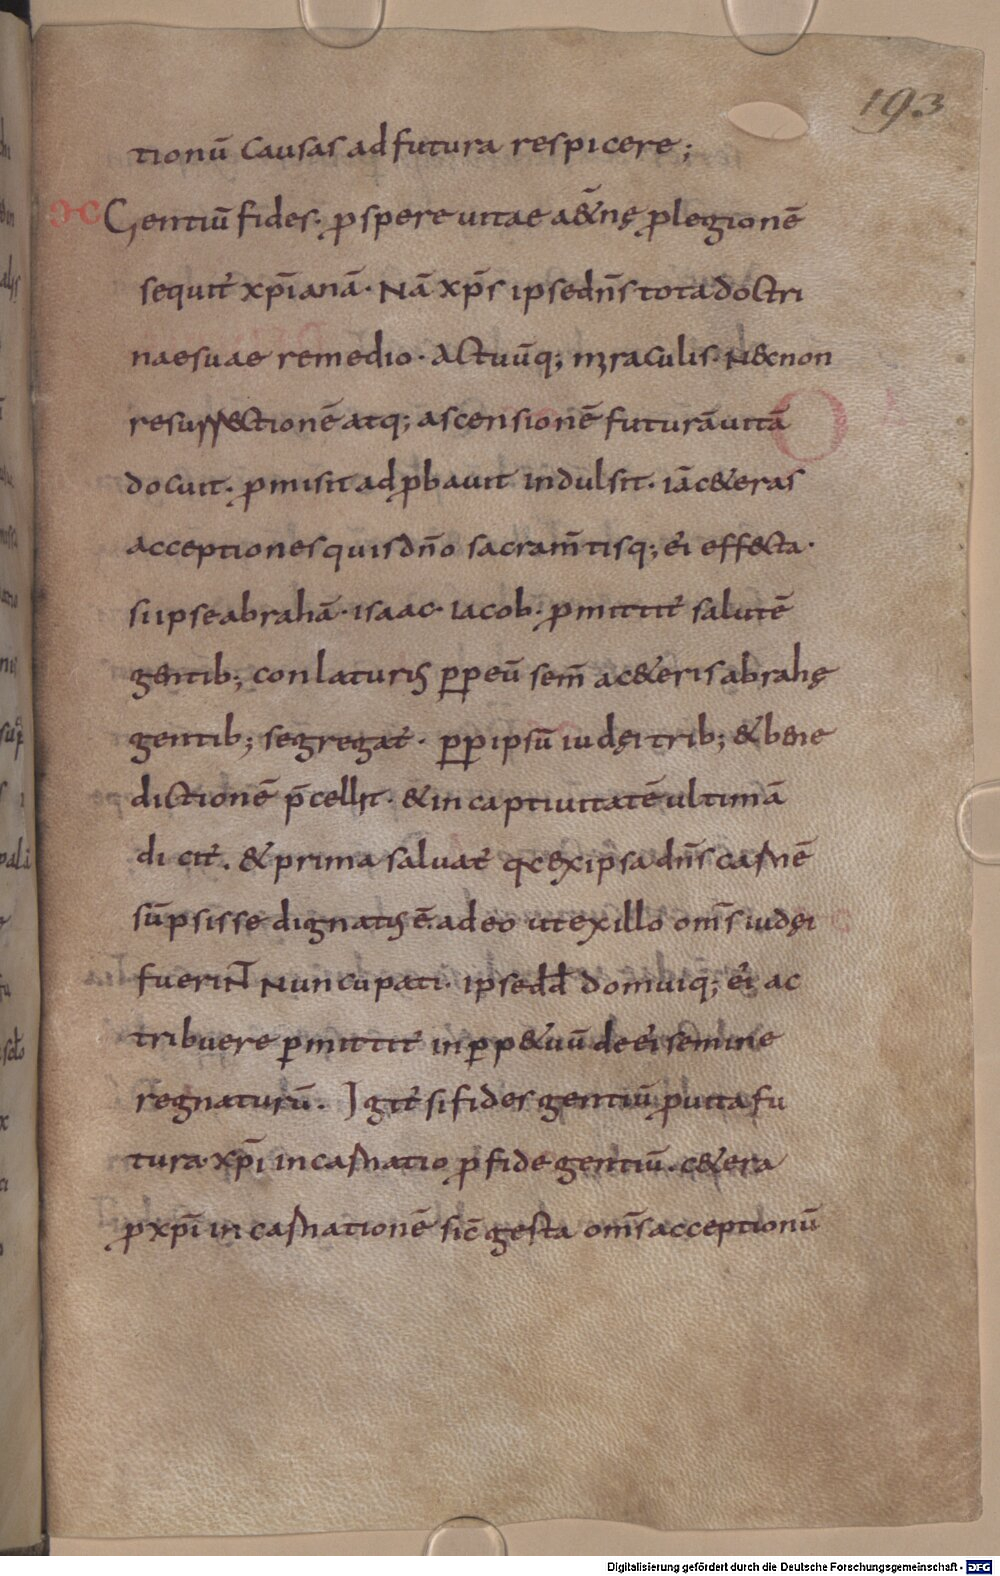 193
tionū causas ad futura respicere;
ɔc Gentiū fides· ꝓspere uitae a&̄nę ꝓlegionē
sequit̄ xp̄ianā· Nā xp̄s ipse dn̄s tota doctri
nae suae remedio· actuūq; mraculis· N&non
resurr&ctionē atq; ascensionē futurā uitā
docuit· ꝓmisit adꝓbauit indulsit· iāc&eras
acceptiones quis dn̄o sacram̄tisq; ei effecta·
si ipse abrahā· isaac· iacob· ꝓmittit̄ salutē
gentib; conlaturis ꝑpeū sem̄ ac&eris abrahę
gentib; segregat̄· ꝑp ipsū iudęi trib; & bene
dictionē p̄cellit· & in captiuitatē ultimā
dicit̄. & prima saluat̄ qc ex ipsa dn̄s carnē
sūpsisse dignatus ē· adeo ut ex illo om̄s iudęi
fuerint nuncupati· ipse dd domuiq; ei ac
tribuere ꝑmittit̄ in ꝑp&uū de ei semine
regnaturū· Igit̄ si fides gentiū ꝓ uita fu
tura· xp̄i incarnatio ꝓ fide gentiū· c&era
ꝓ xp̄i incarnationē sic̄ gesta om̄s acceptionū
Digitalisierung gefördert durch die Deutsche Forschungsgemeinschaft - DFG